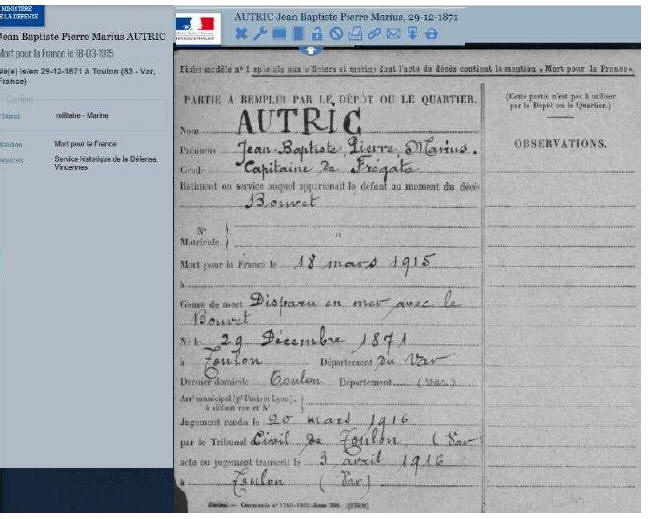 MINISTÈRE
DE LA DÉFENSE
Jean Baptiste Pierre Marius AUTRIC
Mort pour la France le 18-03-1915
Né(e) le/en 29-12-1871 à Toulon (83 - Var,
France)
Carrière
Statut militaire - Marine
Mention Mort pour la France
Service historique de la Défense,
Vincennes
AUTRIC Jean Baptiste Pierre Marius, 29-12-1871
RÉPUBLIQUE FRANÇAISE
Fiche modèle nº 1 spéciale aux officiers et marins dont l'acte de décès contient la mention « Mort pour la France ».
PARTIE A REMPLIR PAR LE DÉPÔT OU LE QUARTIER.
Nom AUTRIC
Prénoms Jean-Baptiste, Pierre, Marius.
Grade Capitaine de Frégate
Bâtiment ou service auquel appartenait le défunt au moment du décès
Bouvet
Nº
Matricule.
Mort pour la France le 18 mars 1915
à
Genre de mort Disparu en mer avec le
Bouvet
Né le 29 Décembre 1871
à Toulon Département du Var
Dernier domicile Toulon Département (Var)
Arrt municipal (pr Paris et Lyon),
à défaut rue et Nº
Jugement rendu le 20 mars 1916
par le Tribunal Civil de Toulon (Var
acte ou jugement transcrit le 3 avril 1916
à Toulon (Var)
(Cette partie n'est pas à utiliser
par le Dépôt ou le Quartier.)
OBSERVATIONS.